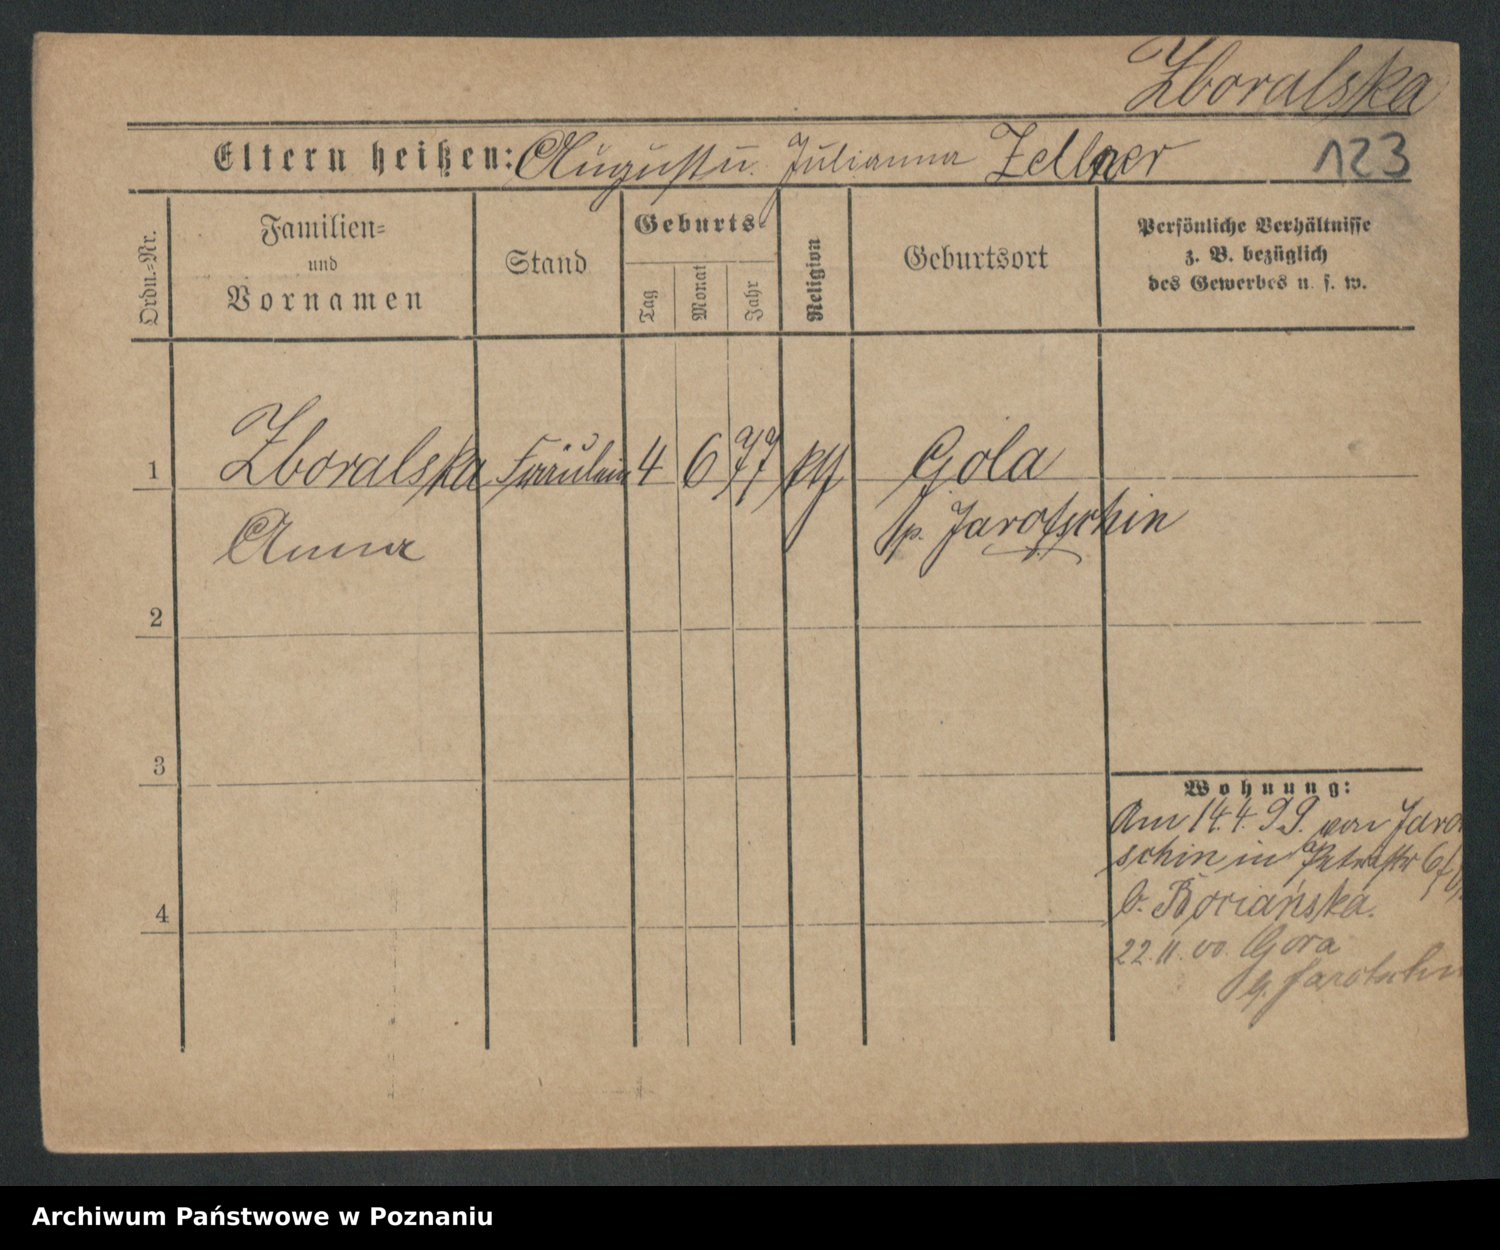 Zboralska
Eltern heißen: August u. Julianna Zellner
123
Ordn.-Nr.
Familien-
und
Vornamen
Stand
Geburts-
Tag
Monat
Jahr
Religion
Geburtsort
Persönliche Verhältnisse
z. B. bezüglich
des Gewerbes u. s. w.
1 Zboralska Fräulein 4 6 77 kath Gola
Anna
Jarotschin
2
3
4
Wohnung:
Am 14.4.99. von Jaro
schin in Petristr 6
b. Boriańska.
22.11.00 Gora
Jarotschin
Archiwum Państwowe w Poznaniu